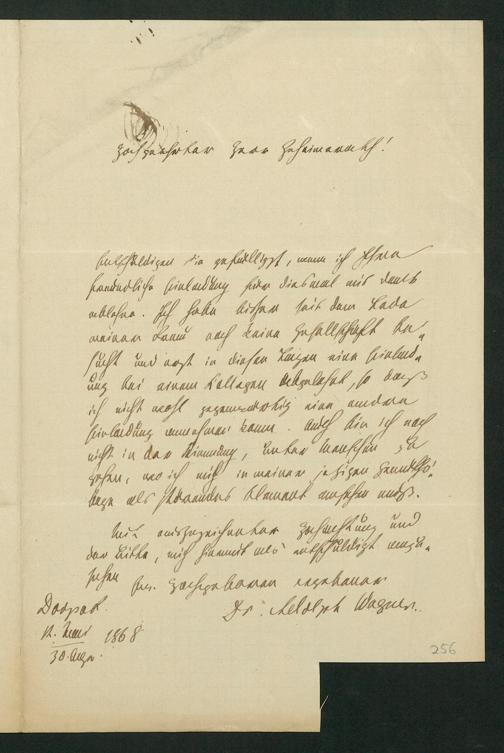 Hochgeehrter Herr Geheimerath!
Entschuldigen Sie gefälligst, wenn ich Ihre
freundliche Einladung für diesmal mit Dank
ablehne. Ich habe bisher seit dem Tode
meiner Frau noch keine Gesellschaft be-
sucht und erst in diesen Tagen eine Einlad-
ung bei einem Collegen abgelehnt, so daß
ich nicht wohl gegenwärtig eine andere
Einladung annehmen kann. Auch bin ich noch
nicht in der Stimmung, unter Menschen zu
gehen, wo ich mich in meiner jetzigen Gemüths-
lage als störendes Element ansehen muß.
Mit ausgezeichneter Hochachtung und
der Bitte, mich hiermit als entschuldigt anzu-
sehen
Ew. Hochgeboren ergebener
Dr. Adolph Wagner.
Dorpat
12. Mai 1868
30. Apr.
256